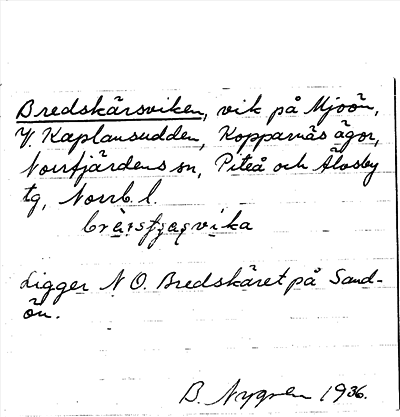 Bredskärsviken, vik på Mjoön,
V. Kaplansudden, Kopparnäs ägor,
Norrfjärdens sn, Piteå och Älvsby
tg, Norrb. l.
Ligger N O. Bredskäret på Sand-
ön.
B. Nygren 1936.